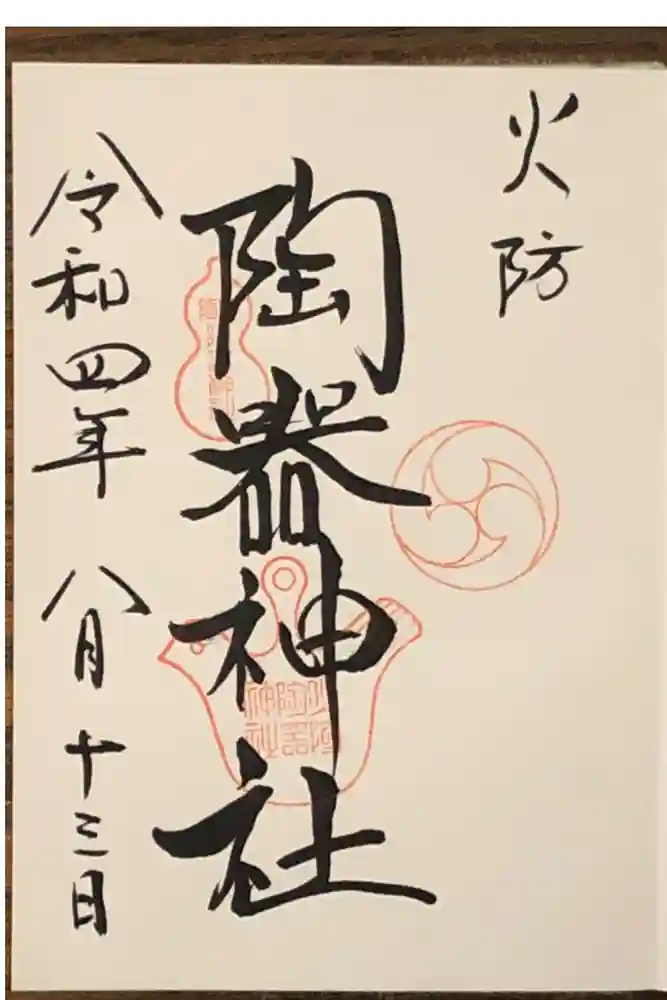 火防
陶器神社
令和四年 八月十三日
火防
陶器
神社